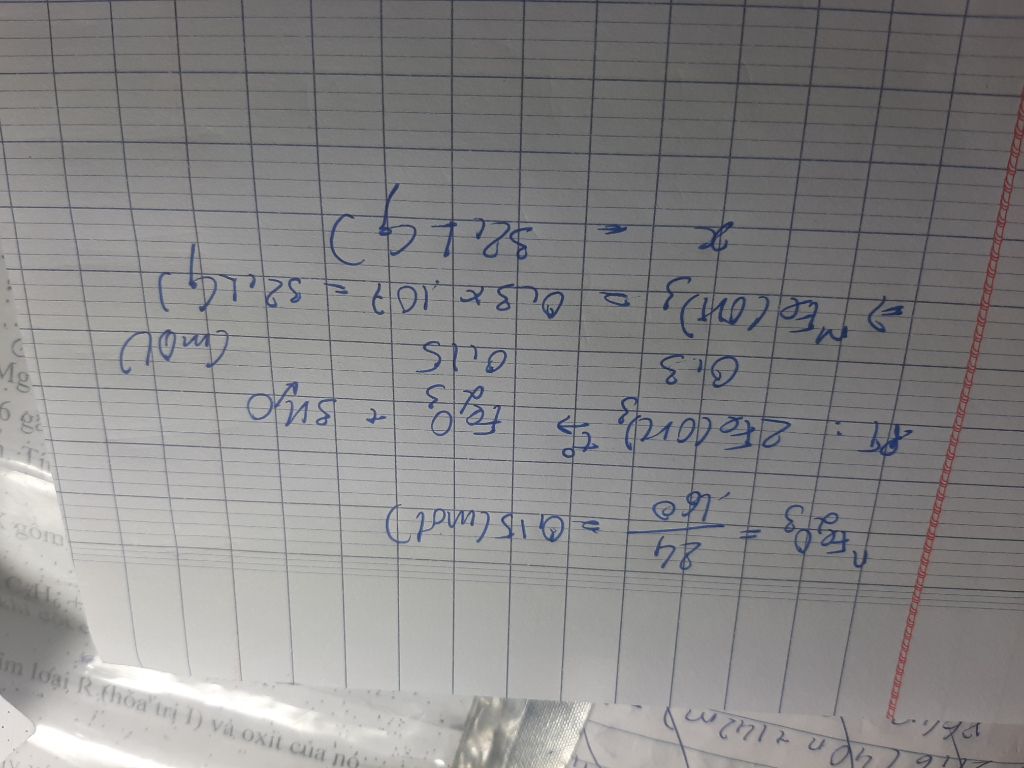 nFe2O3 = 24/160 = 0,15 (mol)
Pt: 2Fe(OH)3 t°→ Fe2O3 + 3H2O
0,3 0,15 (mol)
=> mFe(OH)3 = 0,3 x 107 = 32,1 (g)
x = 32,1 (g)
Mg
6 g
gồm
loại R (hóa trị I) và oxit của nó